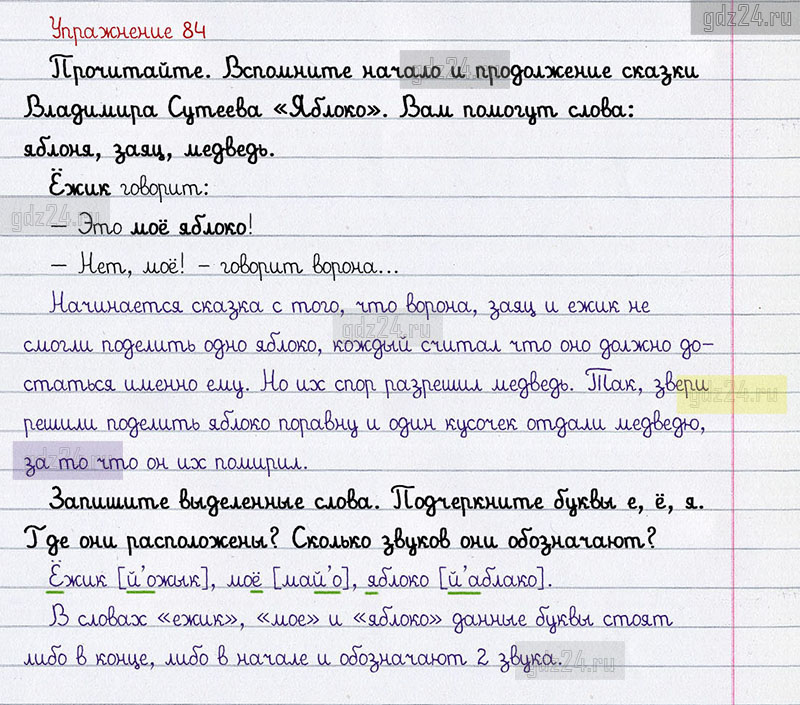 gdz24.ru
Упражнение 84
Прочитайте. Вспомните начало и продолжение сказки
gdz24.ru
Владимира Сутеева «Яблоко». Вам помогут слова:
яблоня, заяц, медведь.
Ёжик говорит:
gdz24.ru
– Это моё яблоко!
– Нет, моё! – говорит ворона...
Начинается сказка с того, что ворона, заяц и ежик не
gdz24.ru
смогли поделить одно яблоко, каждый считал что оно должно до-
статься именно ему. Но их спор разрешил медведь. Так, звери
gdz24.ru
решили поделить яблоко поравну и один кусочек отдали медведю,
за то что он их помирил.
gdz24.ru
Запишите выделенные слова. Подчеркните буквы е, ё, я.
Где они расположены? Сколько звуков они обозначают?
Ёжик [й'ожык], моё [май'о], яблоко [й'аблако].
В словах «ежик», «мое» и «яблоко» данные буквы стоят
либо в конце, либо в начале и обозначают 2 звука.
gdz24.ru